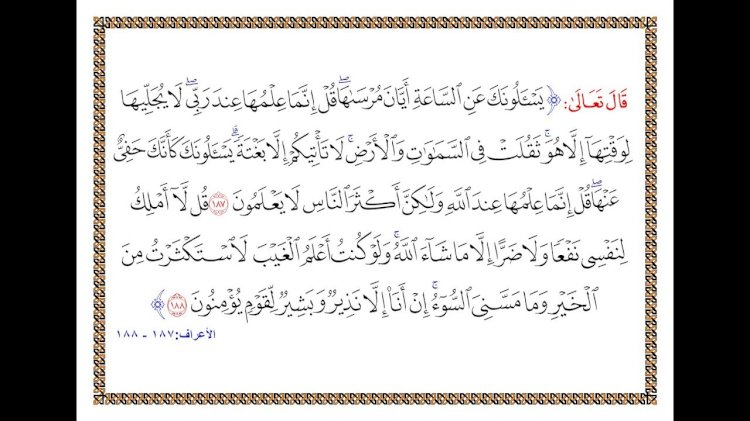 قَالَ تَعَالَىٰ: ﴿ يَسْـَٔلُونَكَ عَنِ ٱلسَّاعَةِ أَيَّانَ مُرْسَىٰهَا ۖ قُلْ إِنَّمَا عِلْمُهَا عِندَ رَبِّى ۖ لَا يُجَلِّيهَا
لِوَقْتِهَآ إِلَّا هُوَ ۚ ثَقُلَتْ فِى ٱلسَّمَـٰوَٰتِ وَٱلْأَرْضِ ۚ لَا تَأْتِيكُمْ إِلَّا بَغْتَةً ۗ يَسْـَٔلُونَكَ كَأَنَّكَ حَفِىٌّ
عَنْهَا ۖ قُلْ إِنَّمَا عِلْمُهَا عِندَ ٱللَّهِ وَلَـٰكِنَّ أَكْثَرَ ٱلنَّاسِ لَا يَعْلَمُونَ ١٨٧ قُل لَّآ أَمْلِكُ
لِنَفْسِى نَفْعًا وَلَا ضَرًّا إِلَّا مَا شَآءَ ٱللَّهُ ۚ وَلَوْ كُنتُ أَعْلَمُ ٱلْغَيْبَ لَٱسْتَكْثَرْتُ مِنَ
ٱلْخَيْرِ وَمَا مَسَّنِىَ ٱلسُّوٓءُ ۚ إِنْ أَنَا۠ إِلَّا نَذِيرٌ وَبَشِيرٌ لِّقَوْمٍ يُؤْمِنُونَ ١٨٨ ﴾
الأعراف: ١٨٧ - ١٨٨